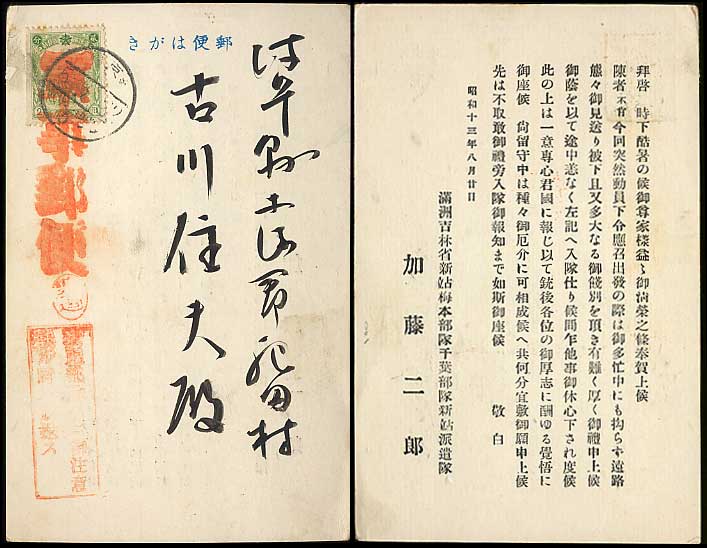 郵便はがき
軍事郵便
岐阜縣土岐郡肥田村
古川住夫殿
注意
拜啓 時下酷暑の候御尊家樣益々御淸榮之條奉賀上候
陳者 不肖 今回突然動員下令應召出發の際は御多忙中にも拘らず遠路
態々御見送り被下且又多大なる御餞別を頂き有難く厚く御禮申上候
御蔭を以て途中恙なく左記へ入隊仕り候間乍他事御休心下され度候
此の上は一意專心君國に報じ以て銃後各位の御厚志に酬ゆる覺悟に
御座候 尙留守中は種々御厄介に可相成候へ共何分宜敷御願申上候
先は不取敢御禮旁入隊御報知まで如斯御座候 敬白
昭和十三年八月廿日
滿洲吉林省新站梅本部隊千葉部隊新站派遣隊
加藤二郎